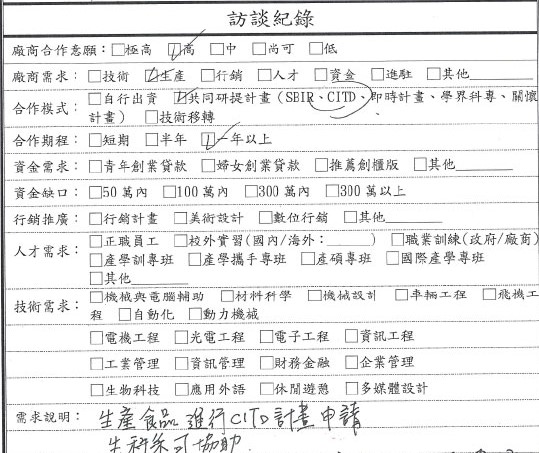 訪談紀錄
廠商合作意願：□極高 ☑高 □中 □尚可 □低
廠商需求：□技術 ☑生產 □行銷 □人才 □資金 □進駐 □其他
合作模式：□自行出資 ☑共同研提計畫（SBIR、CITD、即時計畫、學界科專、關懷
計畫）□技術移轉
合作期程：□短期 □半年 ☑一年以上
資金需求：□青年創業貸款 □婦女創業貸款 □推薦創櫃版 □其他
資金缺口：□50萬內 □100萬內 □300萬內 □300萬以上
行銷推廣：□行銷計畫 □美術設計 □數位行銷 □其他
人才需求：□正職員工 □校外實習(國內/海外：______) □職業訓練(政府/廠商)
□產學訓專班 □產學攜手專班 □產碩專班 □國際產學專班
□其他
技術需求：□機械與電腦輔助 □材料科學 □機械設計 □車輛工程 □飛機工
程 □自動化 □動力機械
□電機工程 □光電工程 □電子工程 □資訊工程
□工業管理 □資訊管理 □財務金融 □企業管理
□生物科技 □應用外語 □休閒遊憩 □多媒體設計
需求說明：生產食品進行CITD計畫申請
生科系可協助